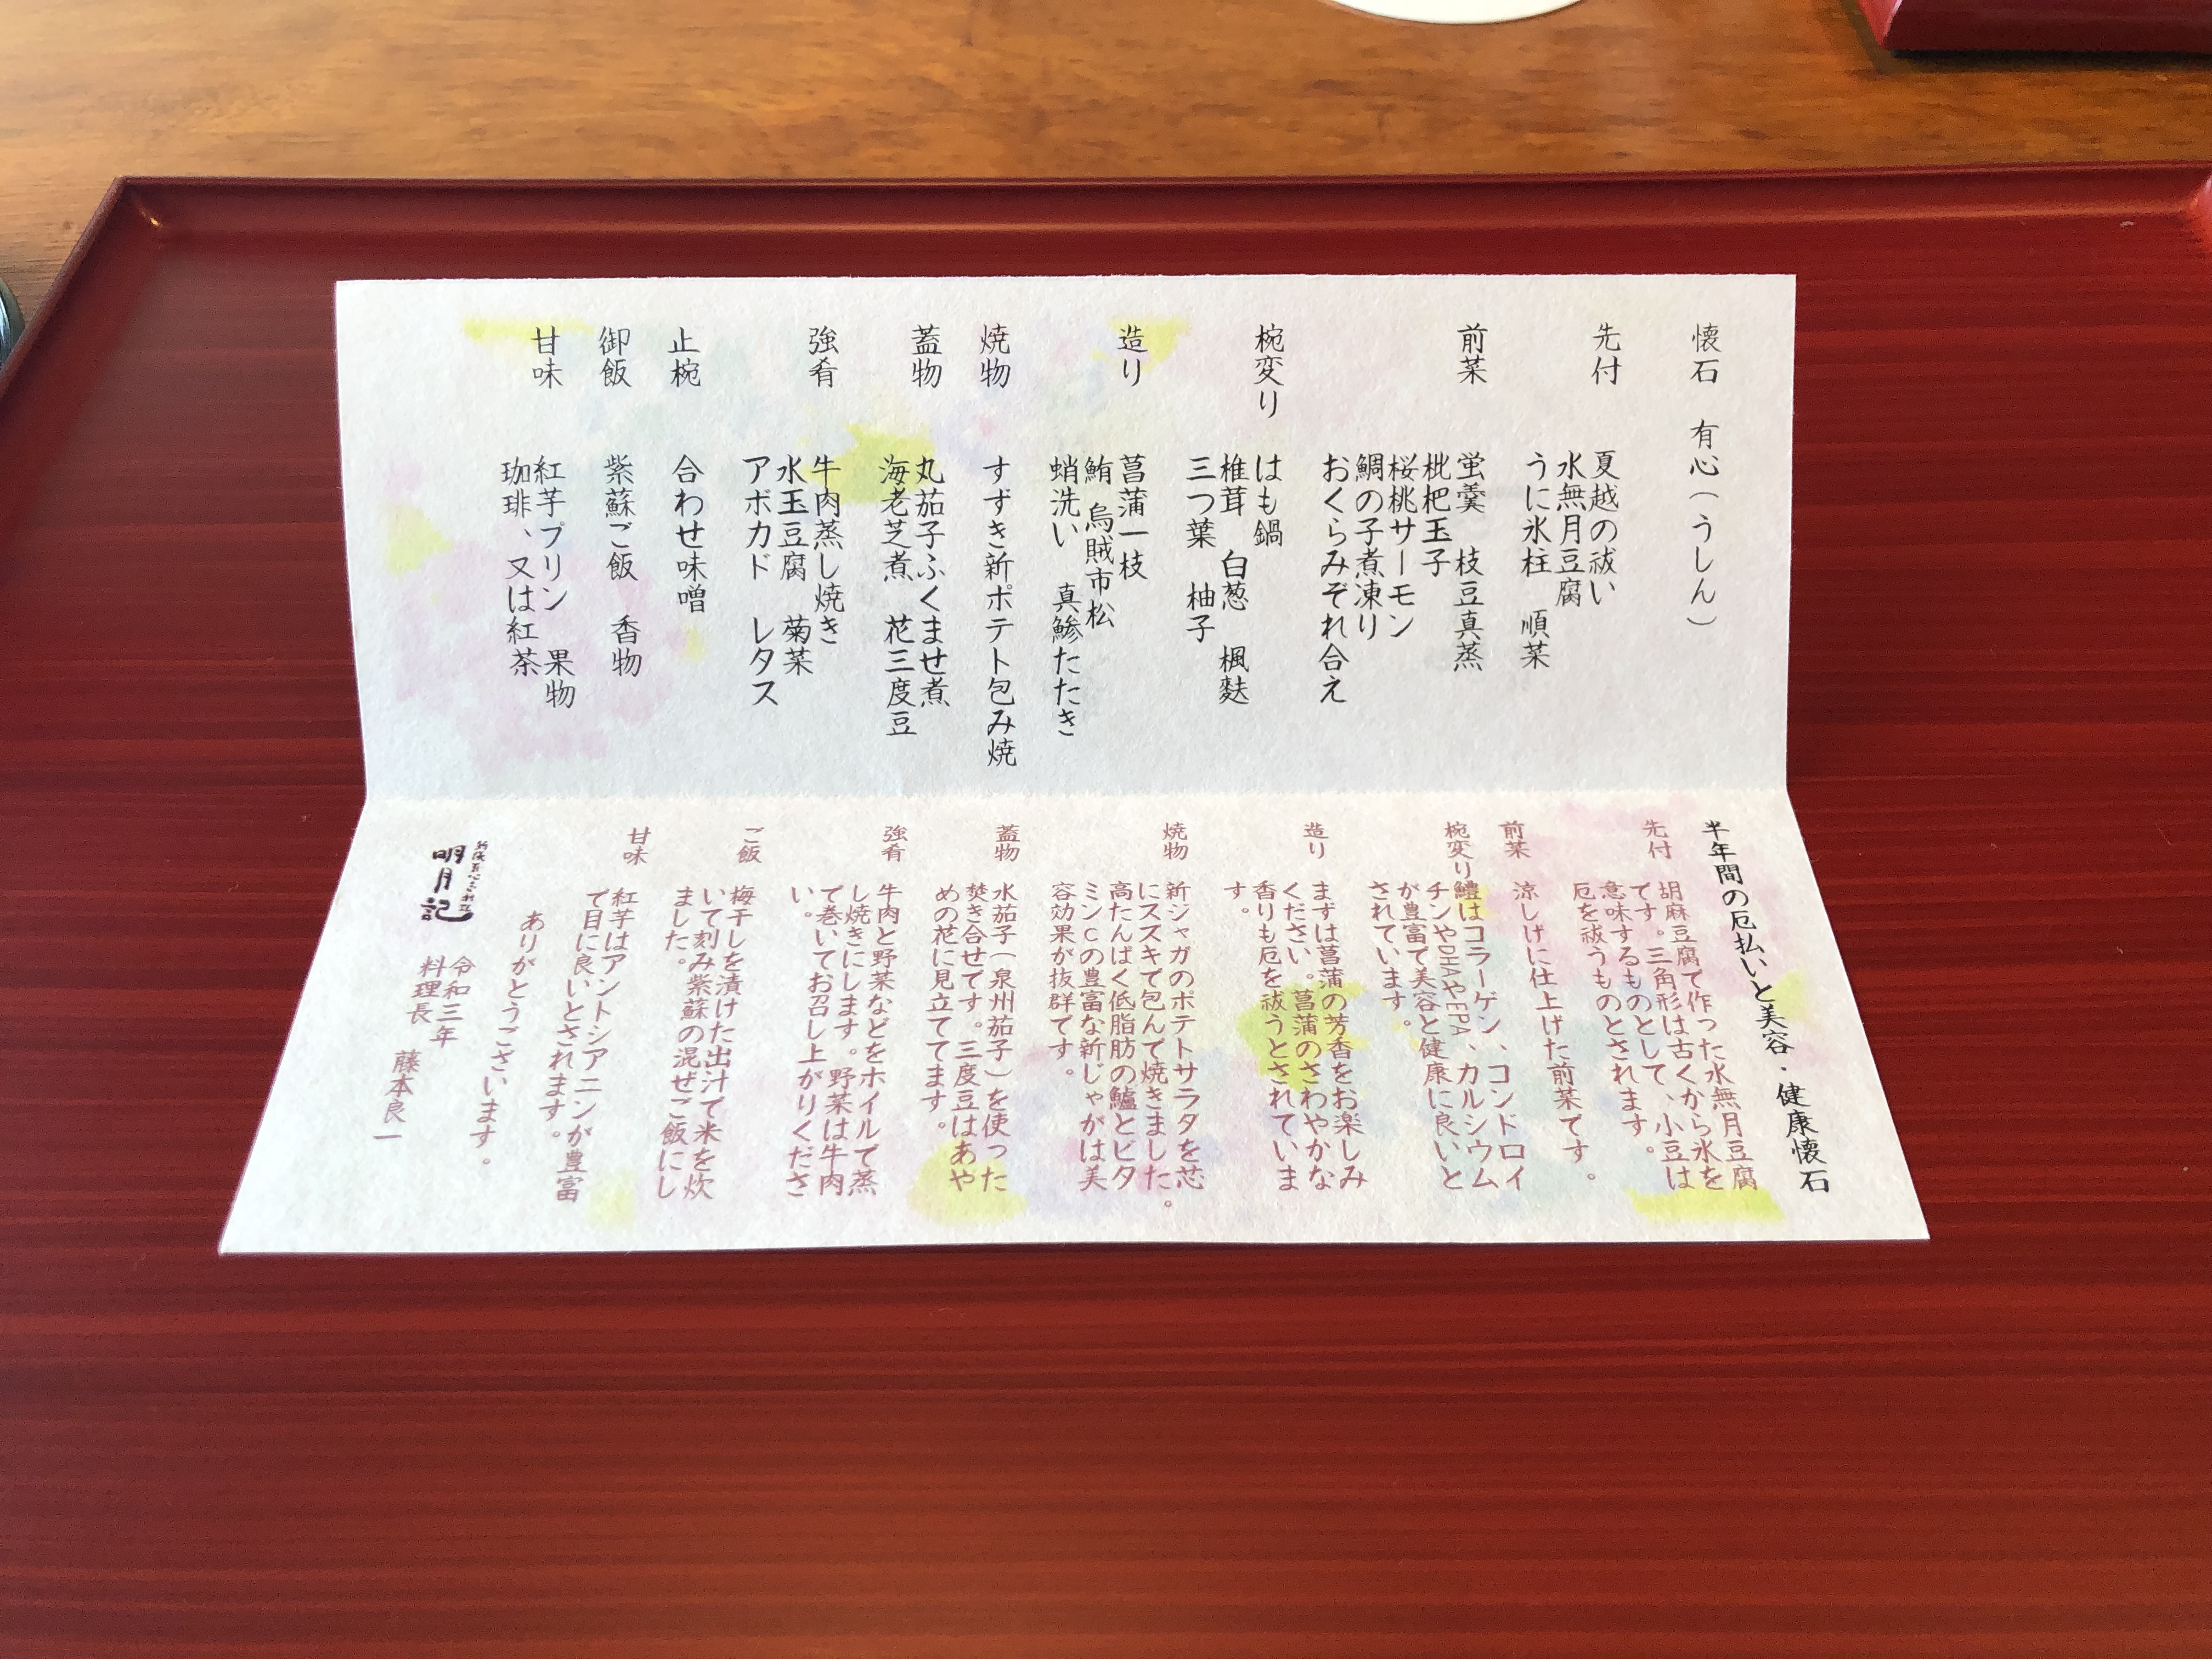 懐石　有心（うしん）
先付
夏越の祓い
水無月豆腐
うに氷柱　順菜
前菜
蛍羹　枝豆真蒸
枇杷玉子
桜桃サーモン
鯛の子煮凍り
おくらみぞれ合え
椀変り
はも鍋
椎茸　白葱　楓麩
三つ葉　柚子
造り
菖蒲一枝
鮪　烏賊市松
蛸洗い　真鯵たたき
焼物
すずき新ポテト包み焼
蓋物
丸茄子ふくませ煮
海老芝煮　花三度豆
強肴
牛肉蒸し焼き
水玉豆腐　菊菜
アボカド　レタス
止椀
合わせ味噌
御飯
紫蘇ご飯　香物
甘味
紅芋プリン　果物
珈琲、又は紅茶
半年間の厄払いと美容・健康懐石
先付
胡麻豆腐で作った水無月豆腐
です。三角形は古くから氷を
意味するものとして、小豆は
厄を祓うものとされます。
前菜
涼しげに仕上げた前菜です。
椀変り
鱧はコラーゲン、コンドロイ
チンやDHAやEPA、カルシウム
が豊富で美容と健康に良いと
されています。
造り
まずは菖蒲の芳香をお楽しみ
ください。菖蒲のさわやかな
香りも厄を祓うとされていま
す。
焼物
新ジャガのポテトサラダを芯
にススキで包んで焼きました。
高たんぱく低脂肪の鱸とビタ
ミンcの豊富な新じゃがは美
容効果が抜群です。
蓋物
水茄子（泉州茄子）を使った
焚き合せです。三度豆はあや
めの花に見立ててます。
強肴
牛肉と野菜などをホイルで蒸
し焼きにします。野菜は牛肉
で巻いてお召し上がりくださ
い。
ご飯
梅干しを漬けた出汁で米を炊
いて刻み紫蘇の混ぜご飯にし
ました。
甘味
紅芋はアントシアニンが豊富
で目に良いとされます。
ありがとうございます。
明月記
令和三年
料理長　藤本良一